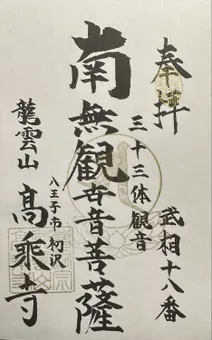 奉拝
武相十八番
三十三体観音
南無観世音菩薩
八王子市初沢
龍雲山 高乗寺